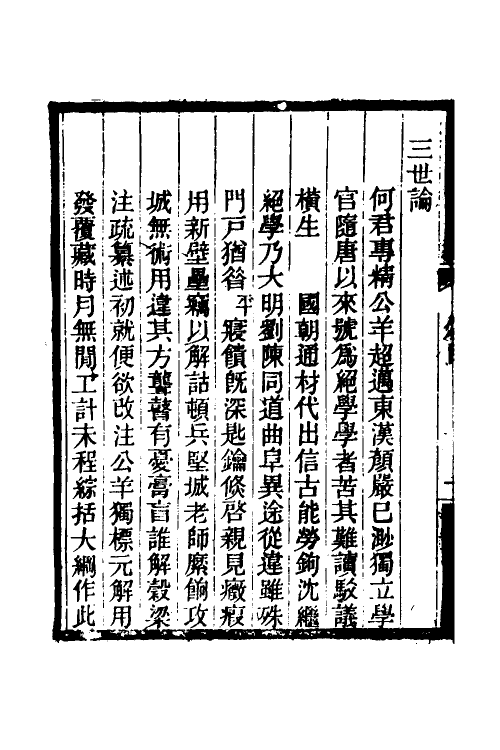 三世論
何君專精公羊超邁東漢顏嚴已渺獨立學
官隨唐以來號爲絕學學者苦其難讀駁議
橫生　國朝通材代出信古能勞鉤沈繼
絕學乃大明劉陳同道曲阜異途從違雖殊
門戸猶昝平寢饋旣深匙鑰倏啓親見癥瘕
用新壁壘竊以解詁頓兵堅城老師縻餉攻
城無術用違其方聾瞽有憂膏盲誰解穀梁
注疏纂述初就便欲改注公羊獨標元解用
發覆藏時月無閒工計未程綜括大綱作此